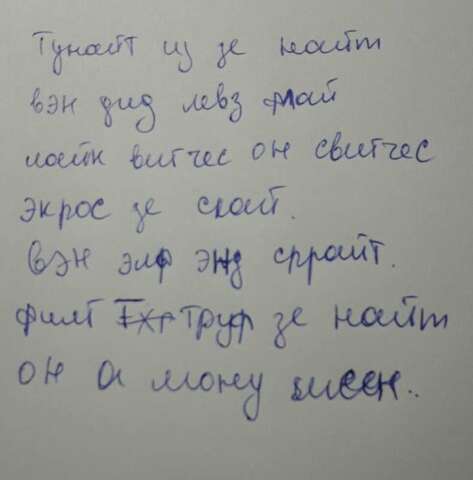 Тунайт из зе найт
вэн дид левз май
лайк витчес он свитчес
экрос зе скай.
Вэн элф энд спрайт.
флит труф зе найт
он а мону шеен..